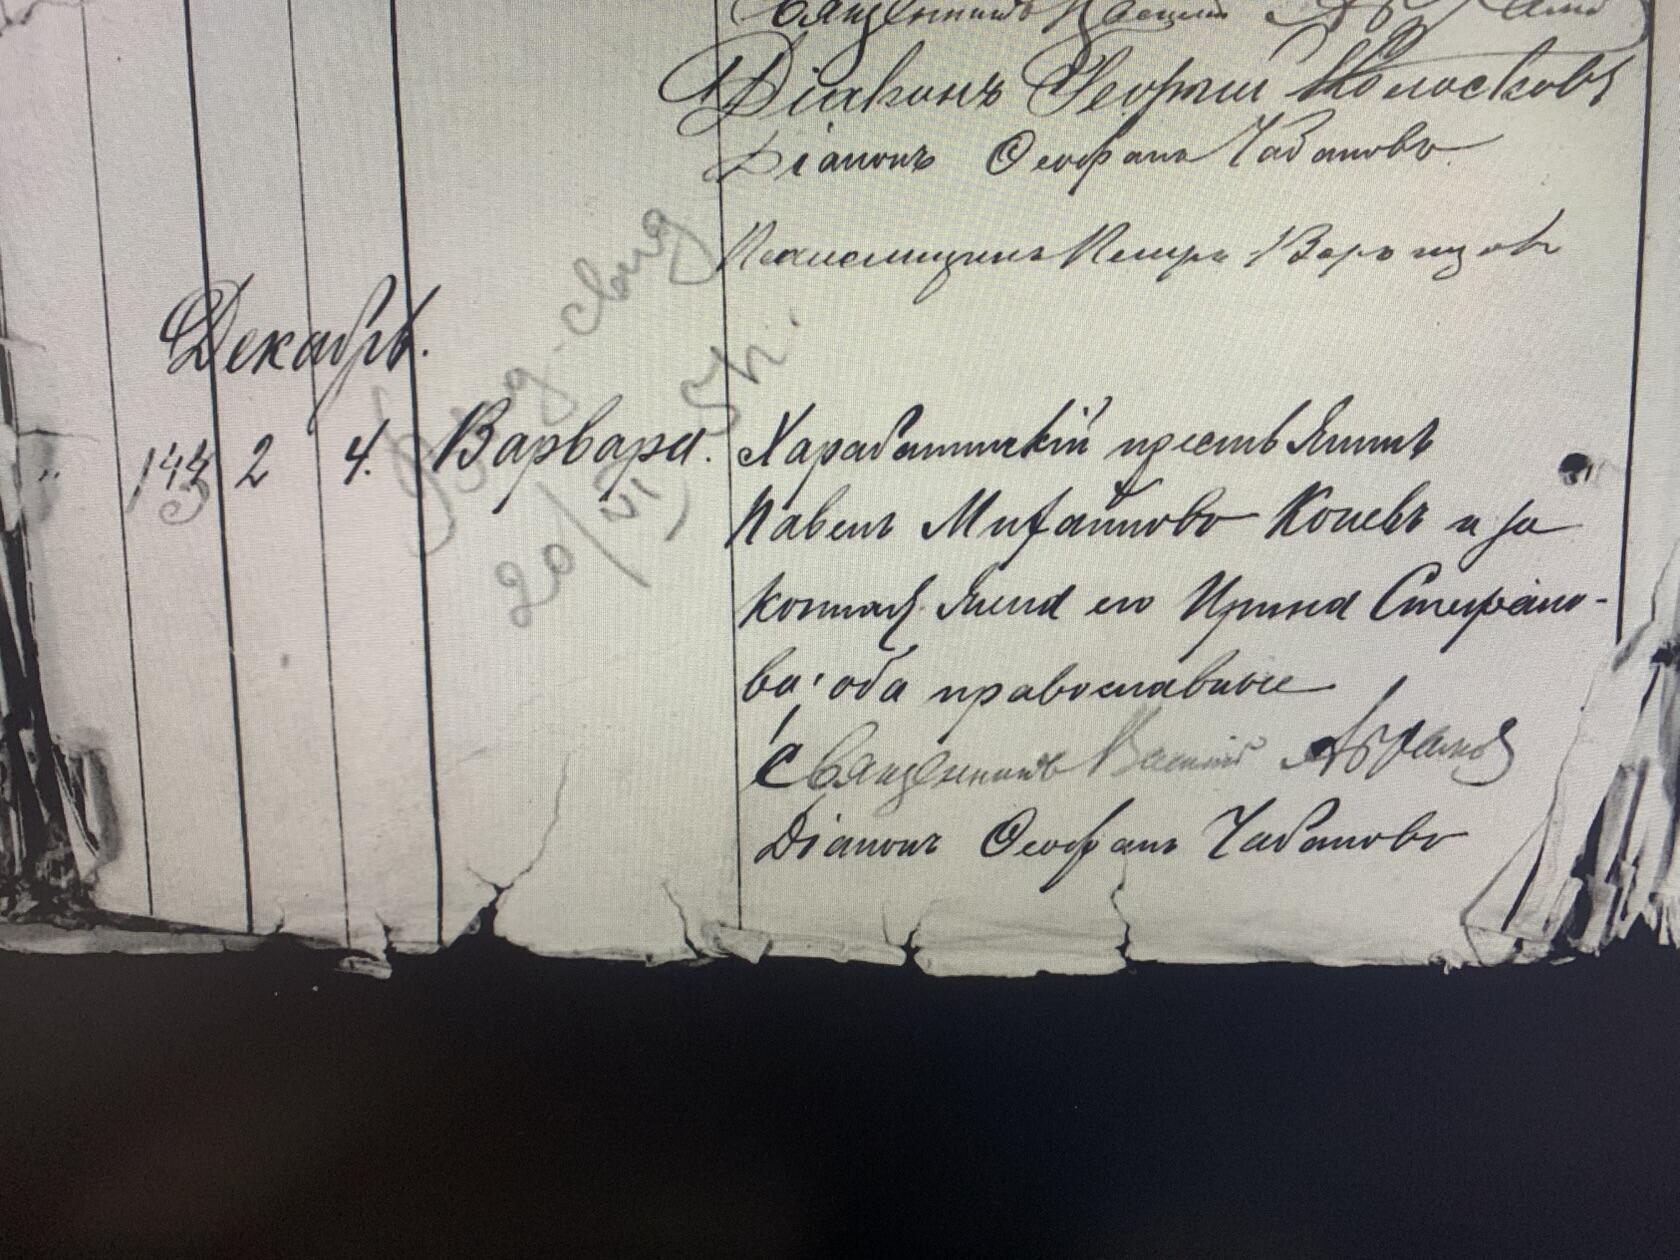 Священникъ Василій
Діаконъ Георгій Колосковъ
Діаконъ Ѳеофанъ Чабановъ
Псаломщикъ Петръ Воронцовъ
Декабрь.
144 2 4. Варвара.
Харабалинскій крестьянинъ
Павелъ Михайловъ Коневъ и за
конная жена его Ирина Стефано-
ва; оба православные
Священникъ Василій
Діаконъ Ѳеофанъ Чабановъ
выд. свид.
20/VI